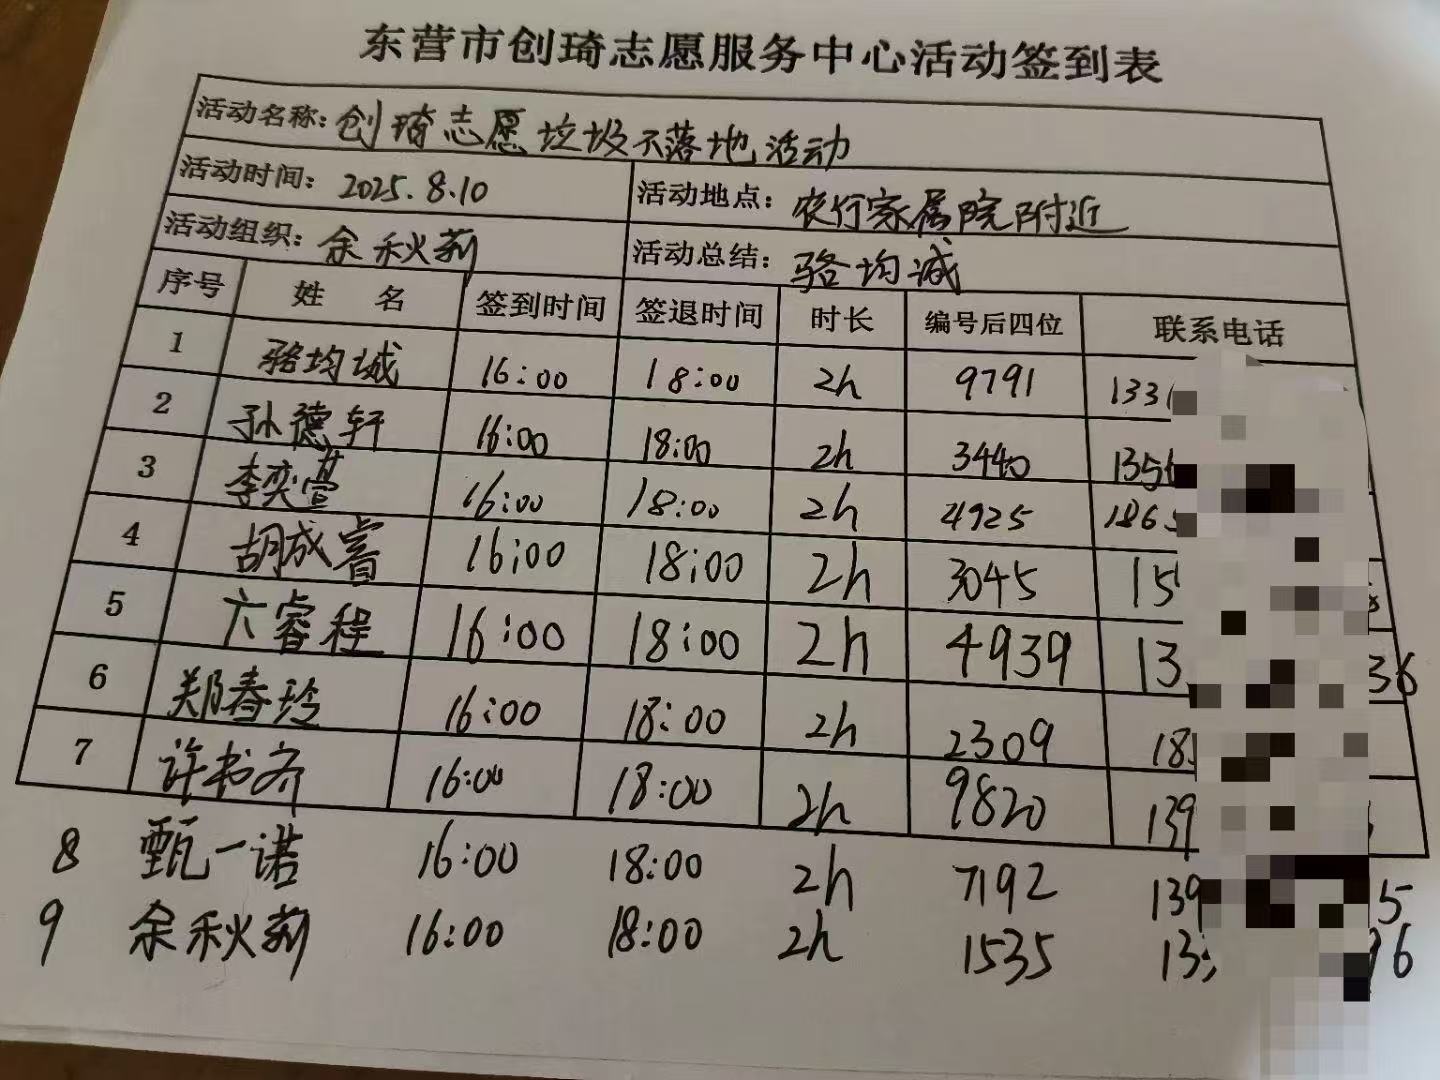 东营市创琦志愿服务中心活动签到表
活动名称：创琦志愿垃圾不落地活动
活动时间：2025.8.10 活动地点：农行家属院附近
活动组织：余秋莉 活动总结：骆均诚
序号 姓 名 签到时间 签退时间 时长 编号后四位 联系电话
1 骆均诚 16:00 18:00 2h 9791 133
2 孙德轩 16:00 18:00 2h 3440 1356
3 李奕萱 16:00 18:00 2h 4925 1865
4 胡成睿 16:00 18:00 2h 3045 15
5 六睿程 16:00 18:00 2h 4939 13 36
6 郑春玲 16:00 18:00 2h 2309 18
7 许书齐 16:00 18:00 2h 9820 139
8 甄一诺 16:00 18:00 2h 7192 139 5
9 余秋莉 16:00 18:00 2h 1535 13 96